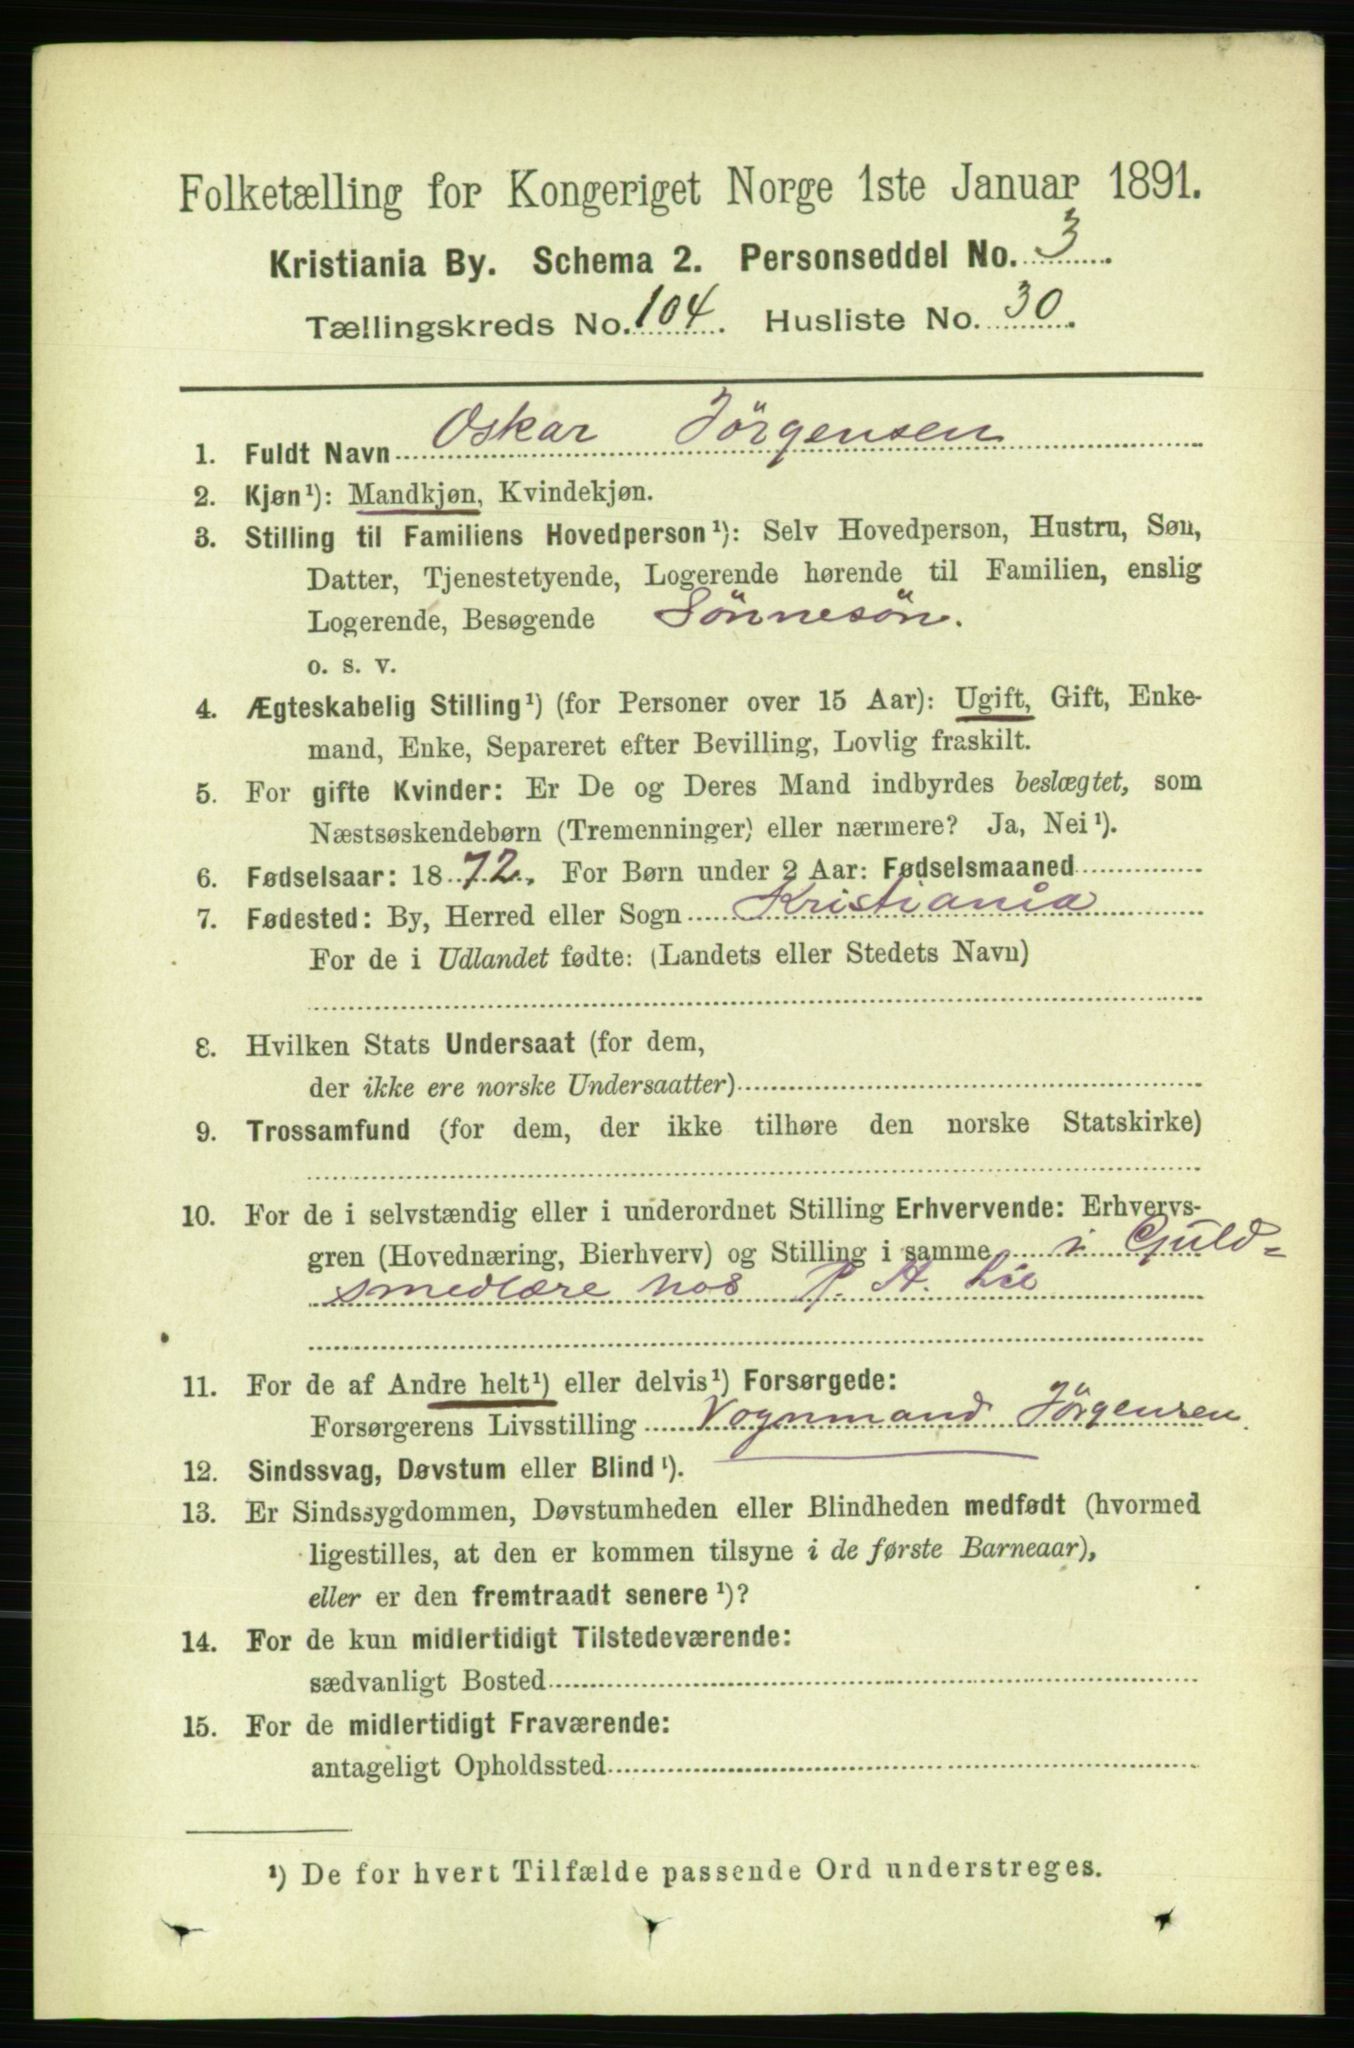 Folketælling for Kongeriget Norge 1ste Januar 1891.
Kristiania By. Schema 2. Personseddel No. 3.
Tællingskreds No. 104. Husliste No. 30.
1. Fuldt Navn Oskar Jörgensen
2. Kjøn¹): Mandkjøn, Kvindekjøn.
3. Stilling til Familiens Hovedperson¹): Selv Hovedperson, Hustru, Søn,
Datter, Tjenestetyende, Logerende hørende til Familien, enslig
Logerende, Besøgende Sönnesön.
o. s. v.
4. Ægteskabelig Stilling¹) (for Personer over 15 Aar): Ugift, Gift, Enke-
mand, Enke, Separeret efter Bevilling, Lovlig fraskilt.
5. For gifte Kvinder: Er De og Deres Mand indbyrdes beslægtet, som
Næstsøskendebørn (Tremenninger) eller nærmere? Ja, Nei¹).
6. Fødselsaar: 1872. For Børn under 2 Aar: Fødselsmaaned
7. Fødested: By, Herred eller Sogn Kristiania
For de i Udlandet fødte: (Landets eller Stedets Navn)
8. Hvilken Stats Undersaat (for dem,
der ikke ere norske Undersaatter)
9. Trossamfund (for dem, der ikke tilhøre den norske Statskirke)
10. For de i selvstændig eller i underordnet Stilling Erhvervende: Erhvervs-
gren (Hovednæring, Bierhverv) og Stilling i samme i Guld-
smedlære hos P. A. Lie
11. For de af Andre helt¹) eller delvis¹) Forsørgede:
Forsørgerens Livsstilling Vognmand Jörgensen.
12. Sindssvag, Døvstum eller Blind¹).
13. Er Sindssygdommen, Døvstumheden eller Blindheden medfødt (hvormed
ligestilles, at den er kommen tilsyne i de første Barneaar),
eller er den fremtraadt senere¹)?
14. For de kun midlertidigt Tilstedeværende:
sædvanligt Bosted
15. For de midlertidigt Fraværende:
antageligt Opholdssted
¹) De for hvert Tilfælde passende Ord understreges.